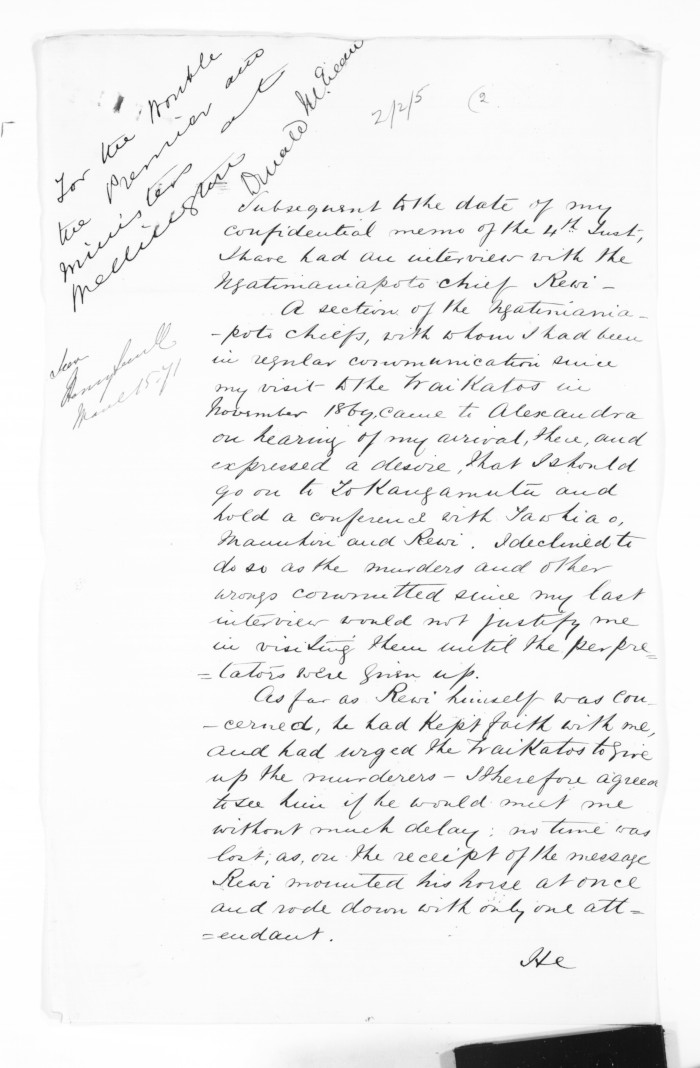 For the Honble
the Premier and
Ministers at
Wellington
Donald McLean
2/2/5 (2
Subsequent to the date of my
confidential memo of the 4th Inst,
I have had an interview with the
Ngatimaniapoto chief Rewi –
A section of the Ngatimania-
-poto chiefs, with whom I had been
in regular communication since
my visit to the Waikatos in
November 1869, came to Alexandra
on hearing of my arrival, there, and
expressed a desire, that I should
go on to Tokangamutu and
hold a conference with Tawhiao,
Manuhiri and Rewi. I declined to
do so as the murders and other
wrongs committed since my last
interview would not justify me
in visiting them until the perpre=
=tators were given up.
As far as Rewi himself was con-
-cerned, he had kept faith with me,
and had urged the Waikatos to give
up the murderers – I therefore agreed
to see him if he would meet me
without much delay; no time was
lost, as, on the receipt of the message
Rewi mounted his horse at once
and rode down with only one att=
=endant.
He
Seen
15. 71